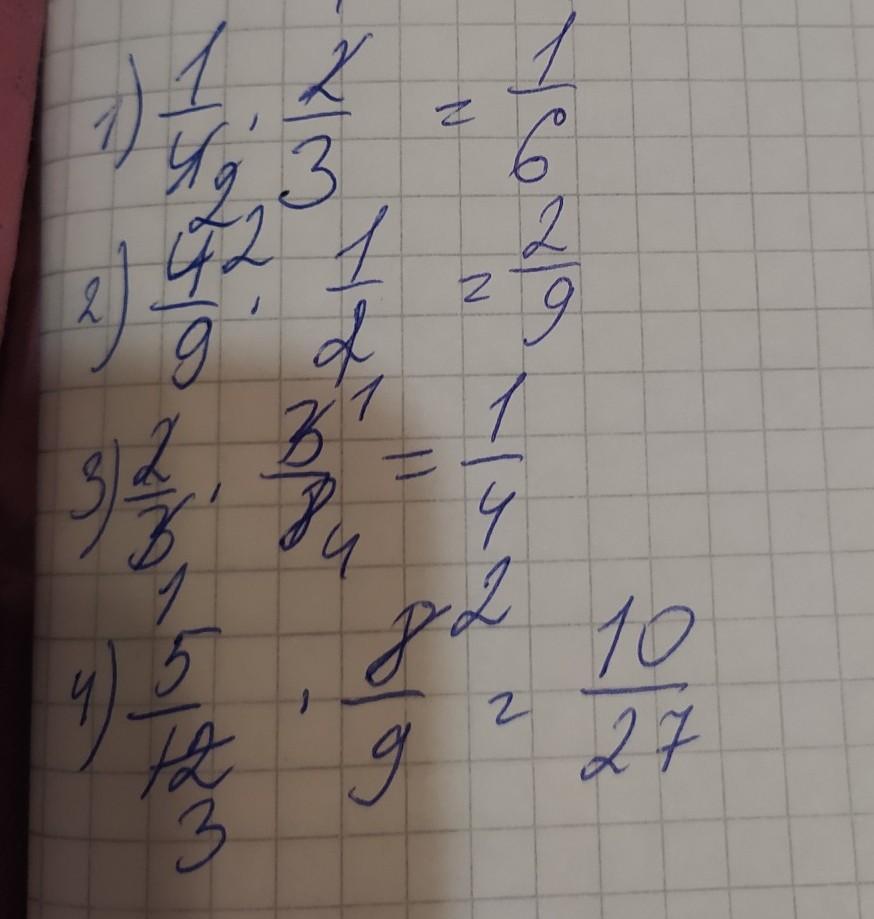 1) 1/4 2 · 2/3 = 1/6
2) 4/9 2 · 1/2 = 2/9
3) 2/3 1 · 3/8 1 4 = 1/4
4) 5/12 3 · 8/9 2 = 10/27